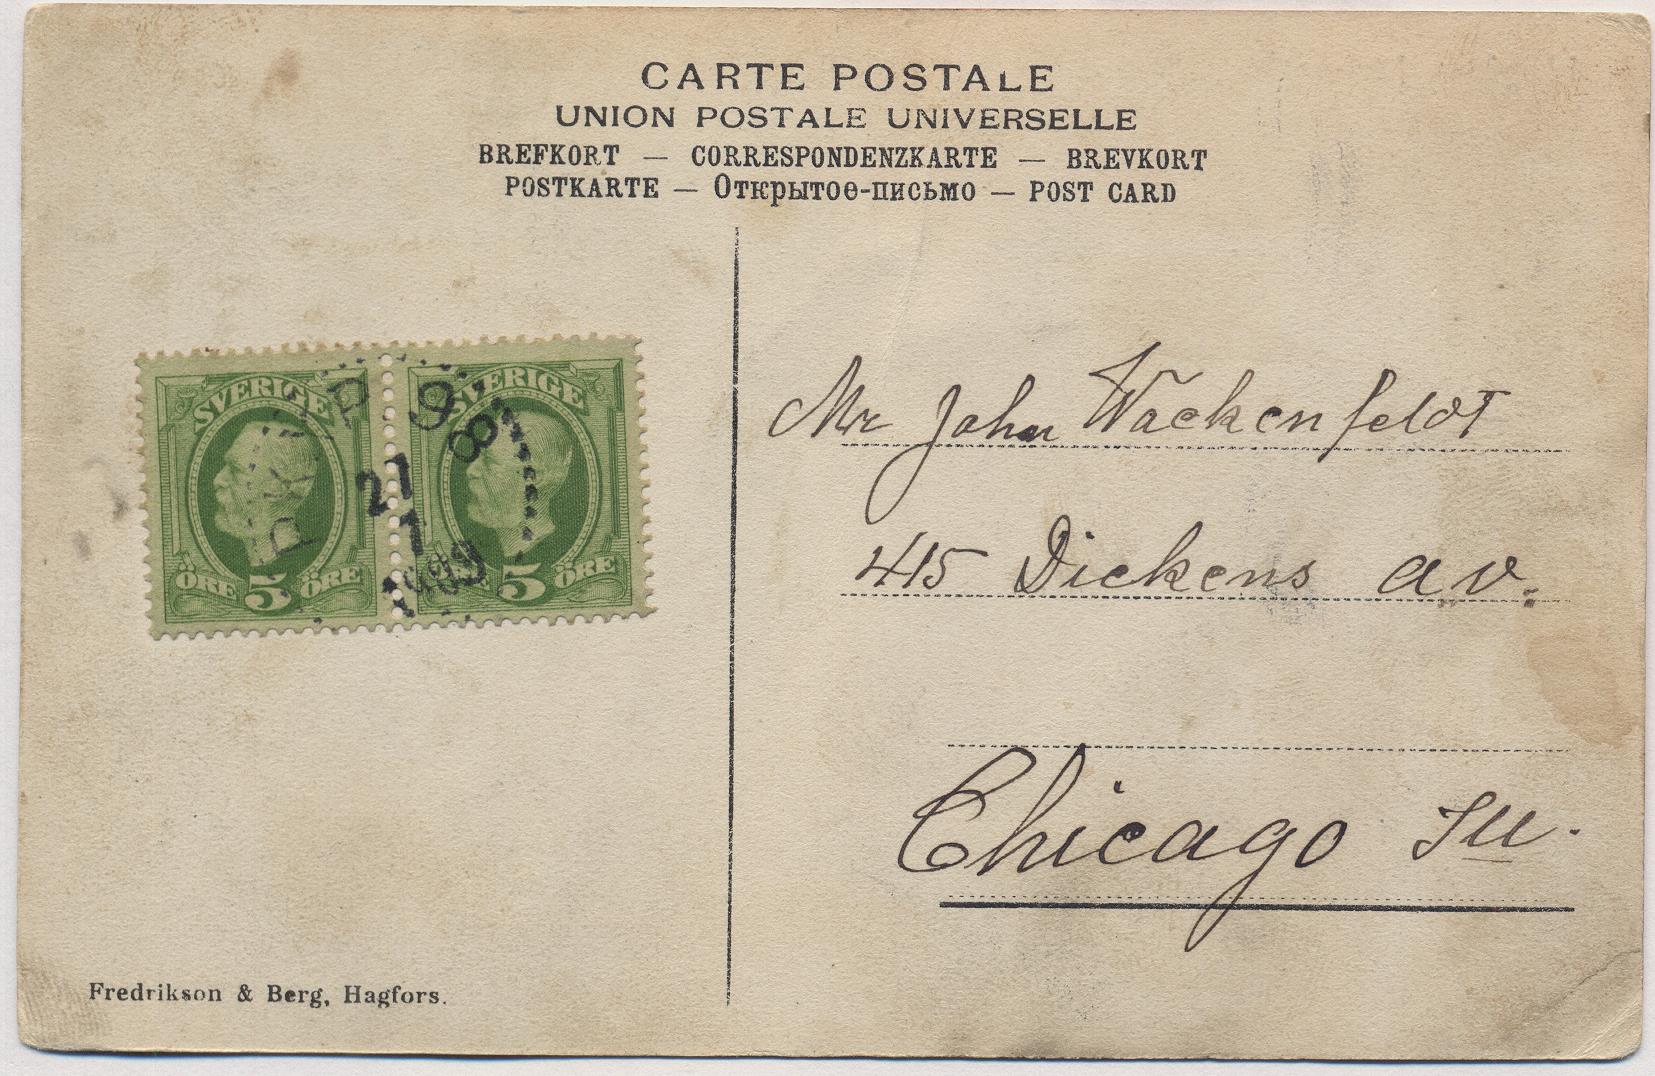 CARTE POSTALE
UNION POSTALE UNIVERSELLE
BREFKORT — CORRESPONDENZKARTE — BREVKORT
POSTKARTE — Открытое-письмо — POST CARD
SVERIGE SVERIGE
ÖRE 5 ÖRE 5 ÖRE
PKXP 98
21
1
1909
Mr John Wackenfeldt
415 Dickens av.
Chicago Ill.
Fredrikson & Berg, Hagfors.